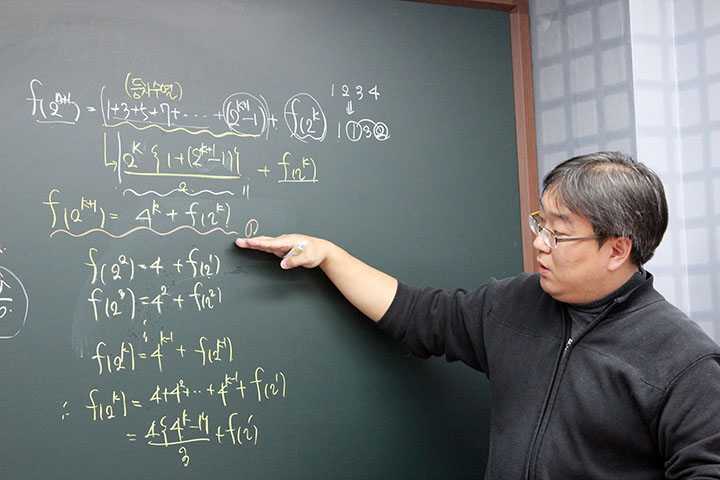 (등차수열)
f(2^{k+1}) = (1+3+5+7+ ‥‥ + (2^{k+1}-1)) + f(2^k)
1 2 3 4
⇓
1 ① 3 ②
↳ 2^k {1+(2^{k+1}-1)} / 2 + f(2^k)
॥
f(2^{k+1}) = 4^k + f(2^k) ①
f(2^2) = 4 + f(2^1)
f(2^3) = 4^2 + f(2^2)
⋮
f(2^k) = 4^{k-1} + f(2^{k-1})
∴ f(2^k) = 4+4^2+ ‥ +4^{k-1} + f(2^1)
= 4{4^{k-1}-1} / 3 + f(2^1)